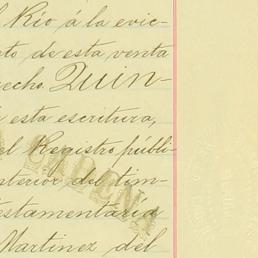 el Rio á la evic-
to de esta venta
recho. Quin-
á esta escritura,
el Registro públi-
nterior del tim-
testamentaria
Martinez del
CADENA